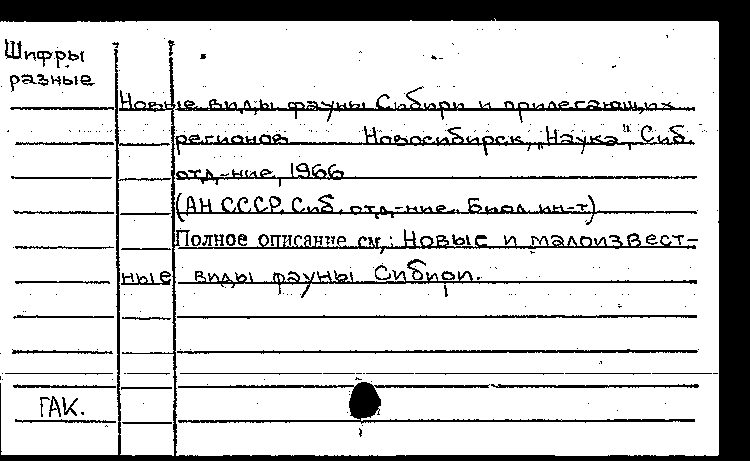 Шифры
разные
Новые виды фауны Сибири и прилегающих
регионов Новосибирск, "Наука", Сиб.
отд-ние, 1966
(АН СССР. Сиб. отд-ние. Биол. ин-т)
Полное описание см.: Новые и малоизвест-
ные виды фауны Сибири.
ГАК.